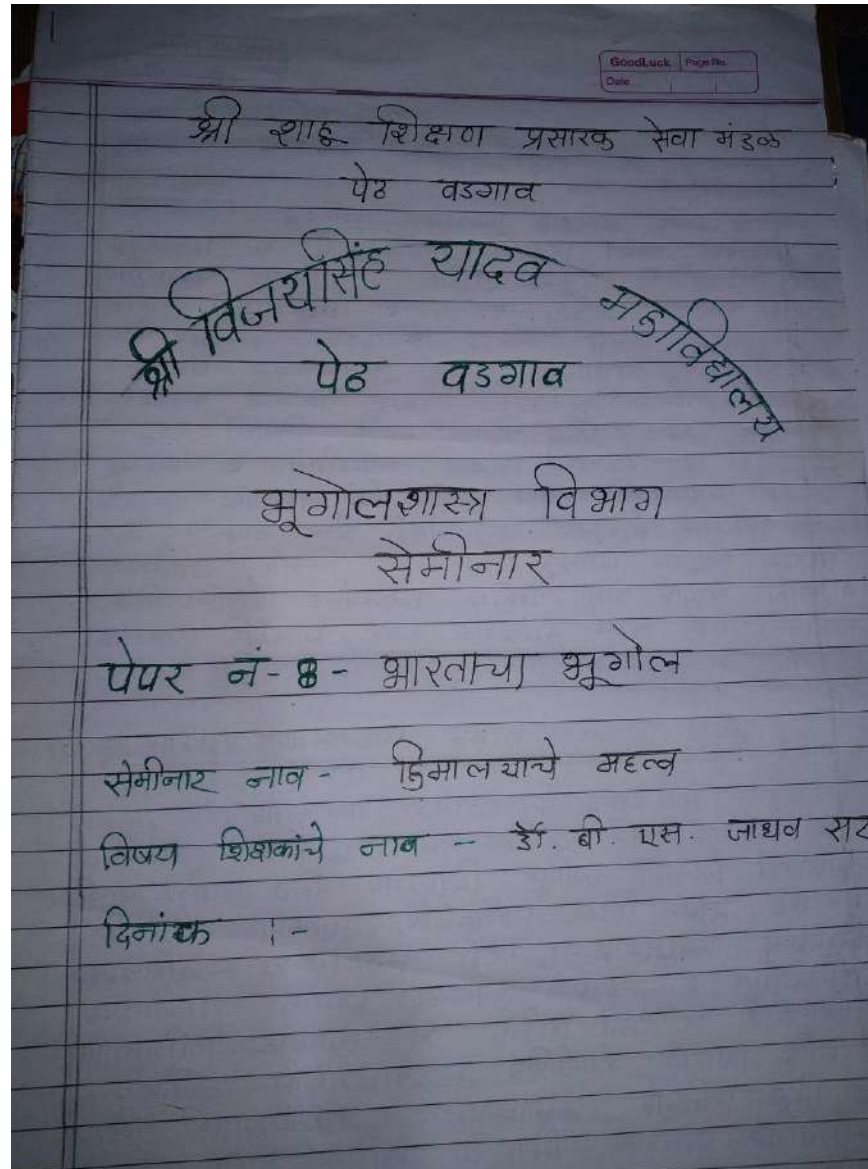 GoodLuck Page No.
Date
श्री शाहू शिक्षण प्रसारक सेवा मंडळ
पेठ वडगाव
श्री विजयसिंह यादव महाविद्यालय
पेठ वडगाव
भूगोलशास्त्र विभाग
सेमीनार
पेपर नं-8- भारताचा भूगोल
सेमीनार नाव - हिमालयाचे महत्व
विषय शिक्षकांचे नाव - डॉ. बी. एस. जाधव सर
दिनांक :-